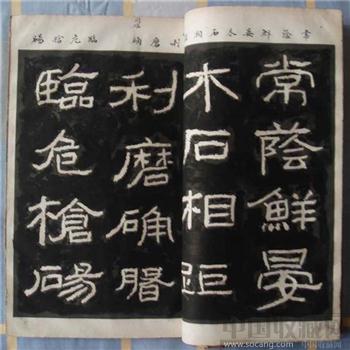 常蔭鮮晏木石相
利磨确
臨危槍碭
常蔭鮮晏
木石相距
利磨确
臨危槍碭
中国收藏网
www.socang.com